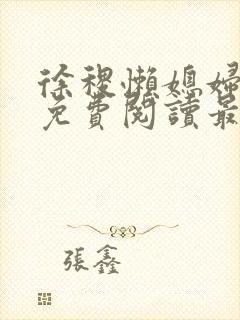 徐稷懶媳婦
免費閱讀最
張鑫